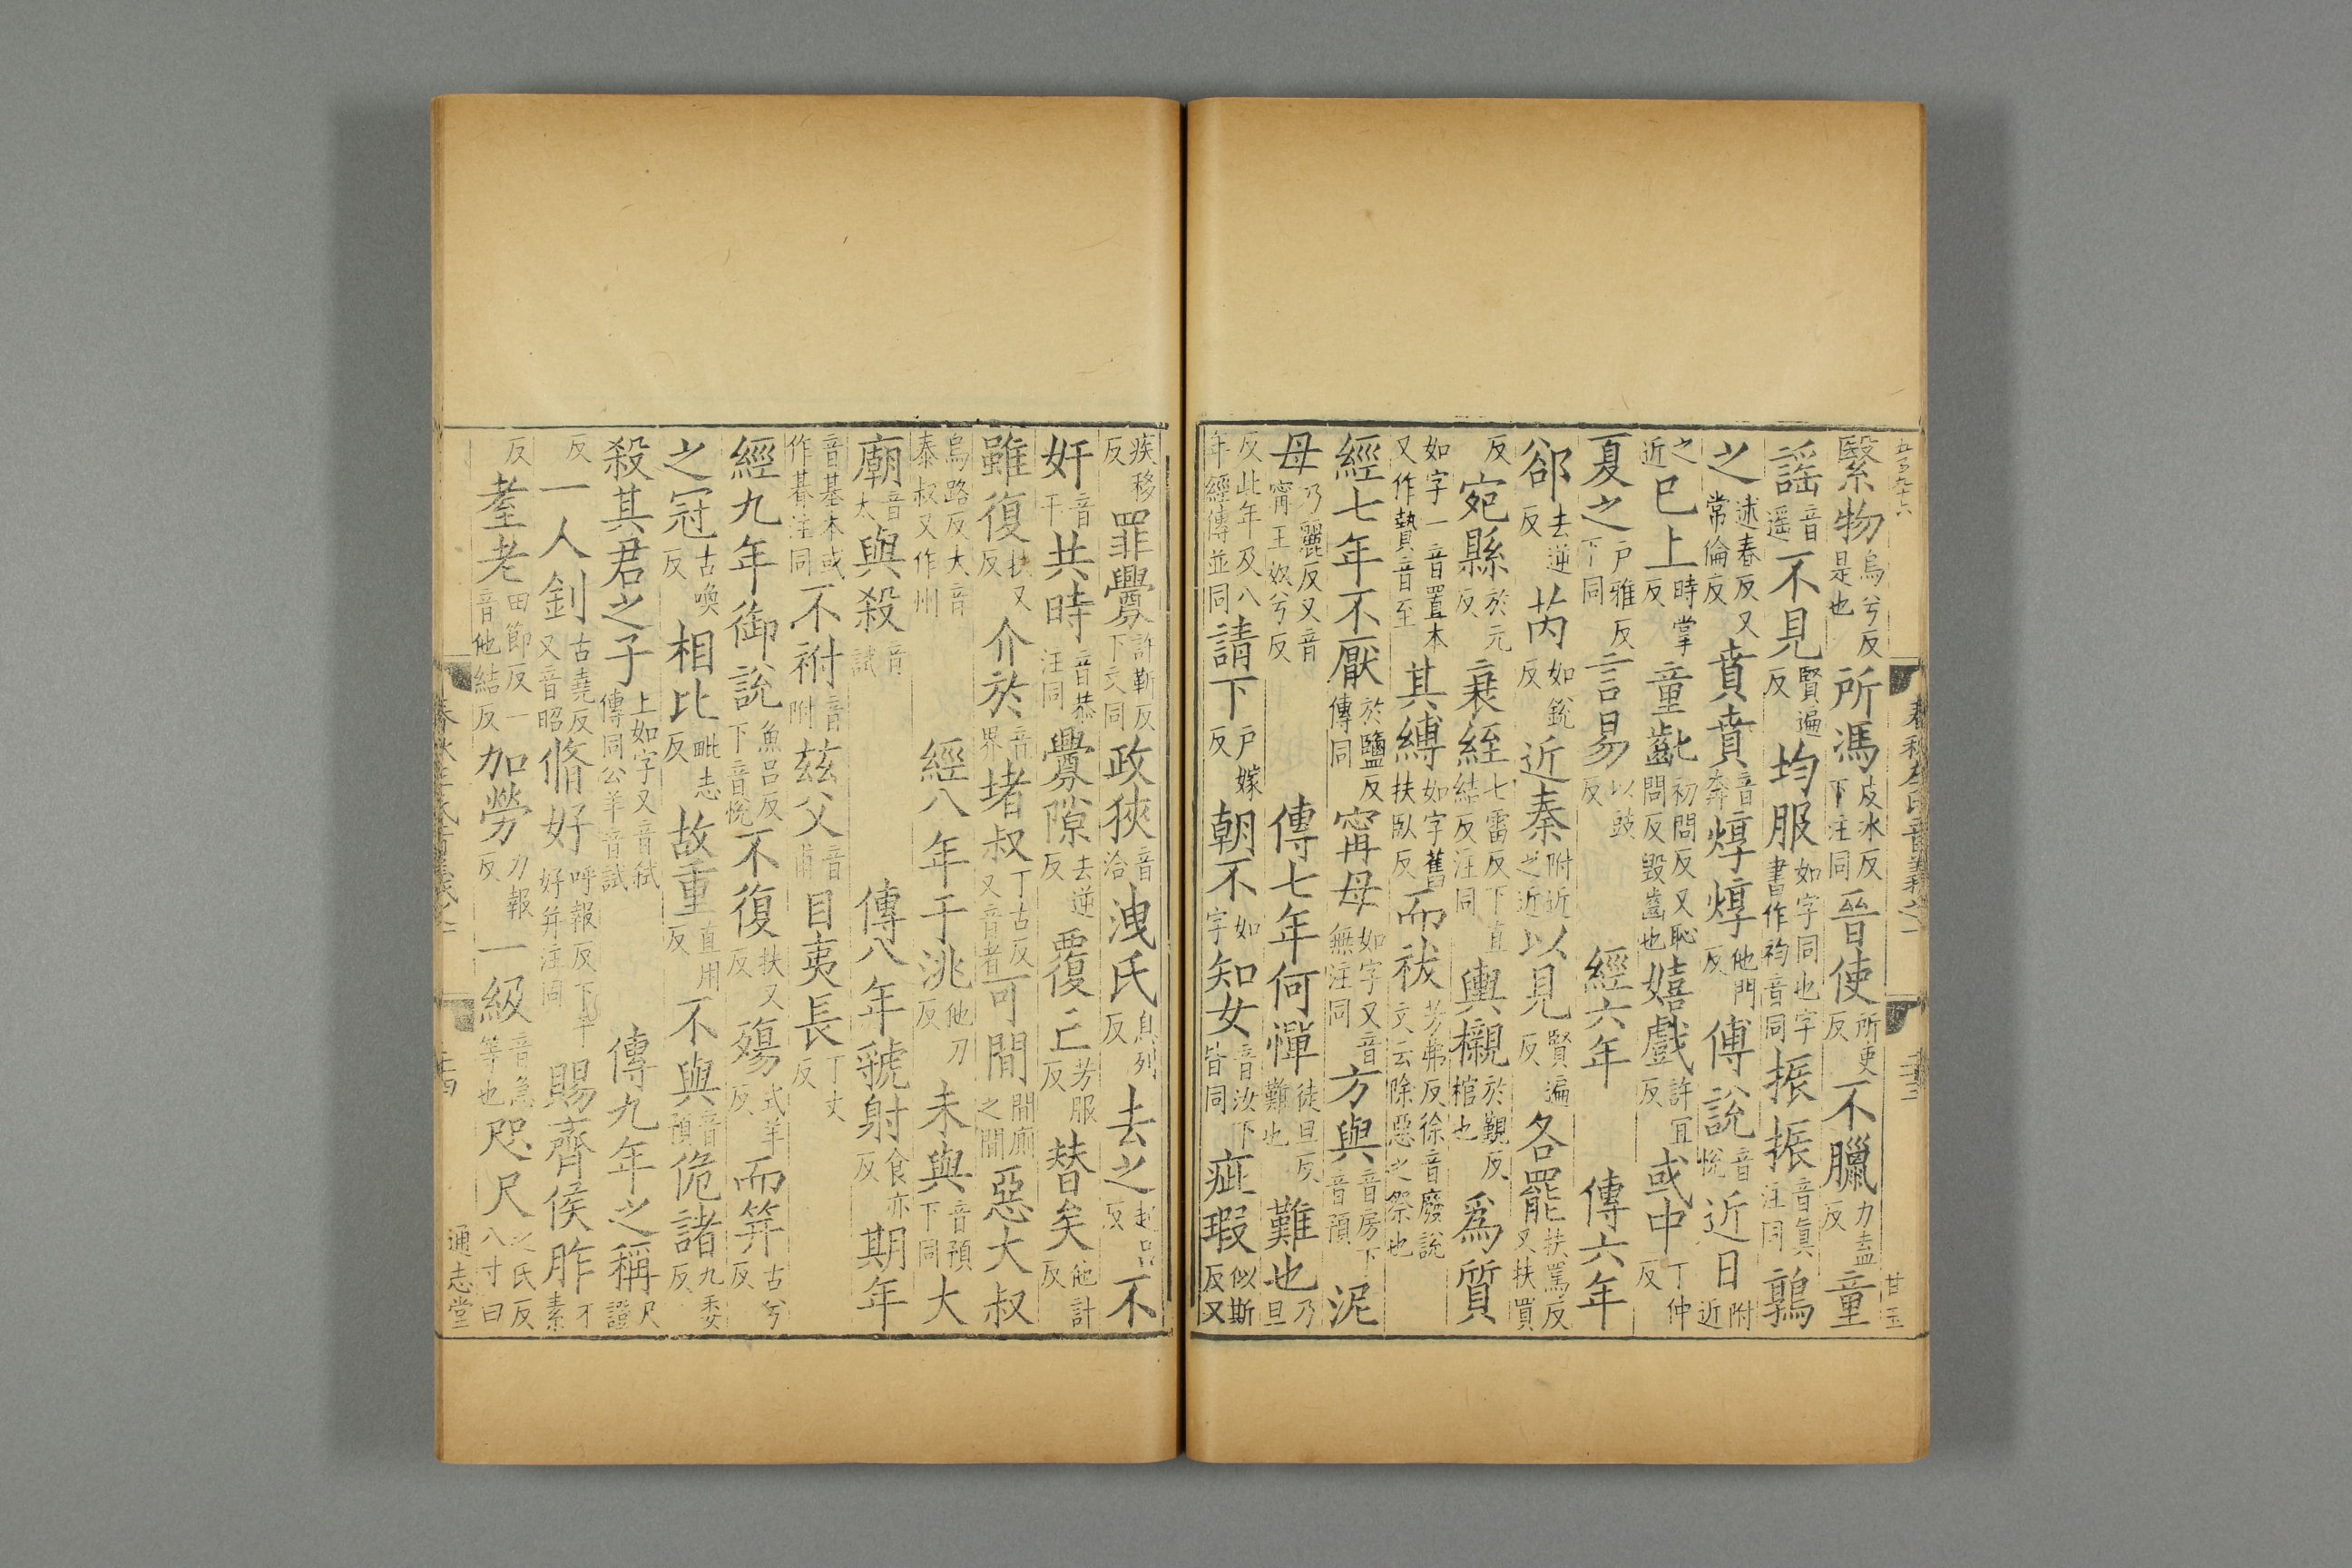 五百九十六
春秋左氏音義之一
二十三
甘玉
繄物烏兮反是也所馮皮冰反下注同晉使所吏反不臘力盍反童
謡音遥不見賢遍反均服如字同也字書作袀音同振振音真注同鶉
之述春反又常倫反賁賁音奔焞焞他門反傅說音悅近日附近
之近巳上時掌反童齔初問反又恥問反毀齒也嬉戲許宜反或中丁仲反
夏之戸雅反下同言易以豉反 經六年 傳六年
郤去逆反芮如銳反近秦附近之近以見賢遍反各罷扶罵反又扶買
反宛縣於元反衰絰七雷反下直結反注同輿櫬於覲反棺也爲質
如字一音置本又作贄音至其縛如字舊扶臥反而祓芳弗反徐音廢說文云除惡之祭也
經七年不厭於鹽反傳同甯母如字又音無注同方與音房下音預泥
母乃麗反又音甯王奴兮反 傳七年何憚徒旦反難也難也乃旦
反此年及八年經傳並同請下戸嫁反朝不如字知女音汝下皆同疵瑕似斯反又
疾移反罪釁許靳反下文同政狹音洽洩氏息列反去之起呂反不
奸音干共時音恭注同釁隙去逆反覆亡芳服反替矣他計反
雖復扶又反介於音界堵叔丁古反又音者可間間厠之間惡大叔
烏路反大音泰叔又作州 經八年于洮他刀反未與音預下同大
廟音太與殺音試 傳八年虢射食亦反期年
音基本或作朞注同不祔音附茲父音甫目夷長丁丈反
經九年御說魚呂反下音悅不復扶又反殤式羊反而笄古兮反
之冠古喚反相比毗志反故重直用反不與音預佹諸九委反
殺其君之子上如字又音弑傳同公羊音試 傳九年之稱尺證
反一人釗古堯反又音昭脩好呼報反下好并注同賜齊侯胙才素
反耋老田節反一音他結反加勞力報反一級音急等也咫尺之氏反八寸曰
春秋左氏音義之一
二十四
通志堂